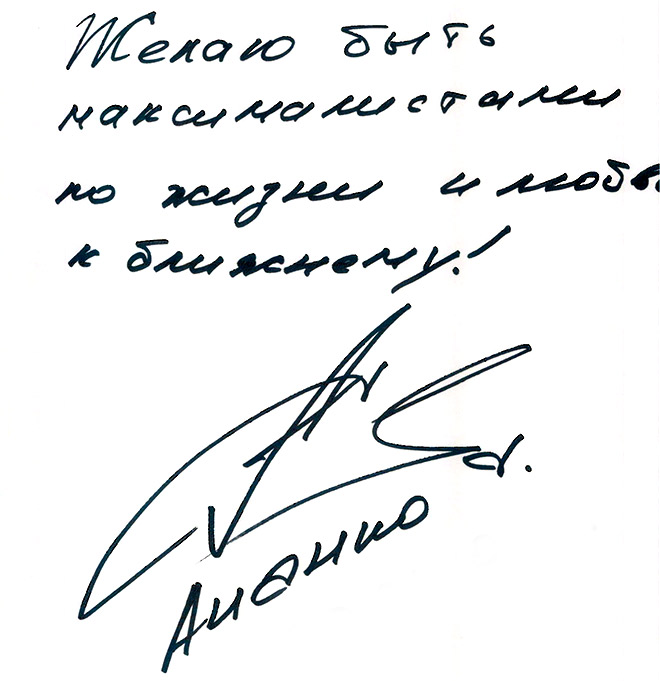 Желаю быть
максималистами
по жизни и любв
к ближнему!